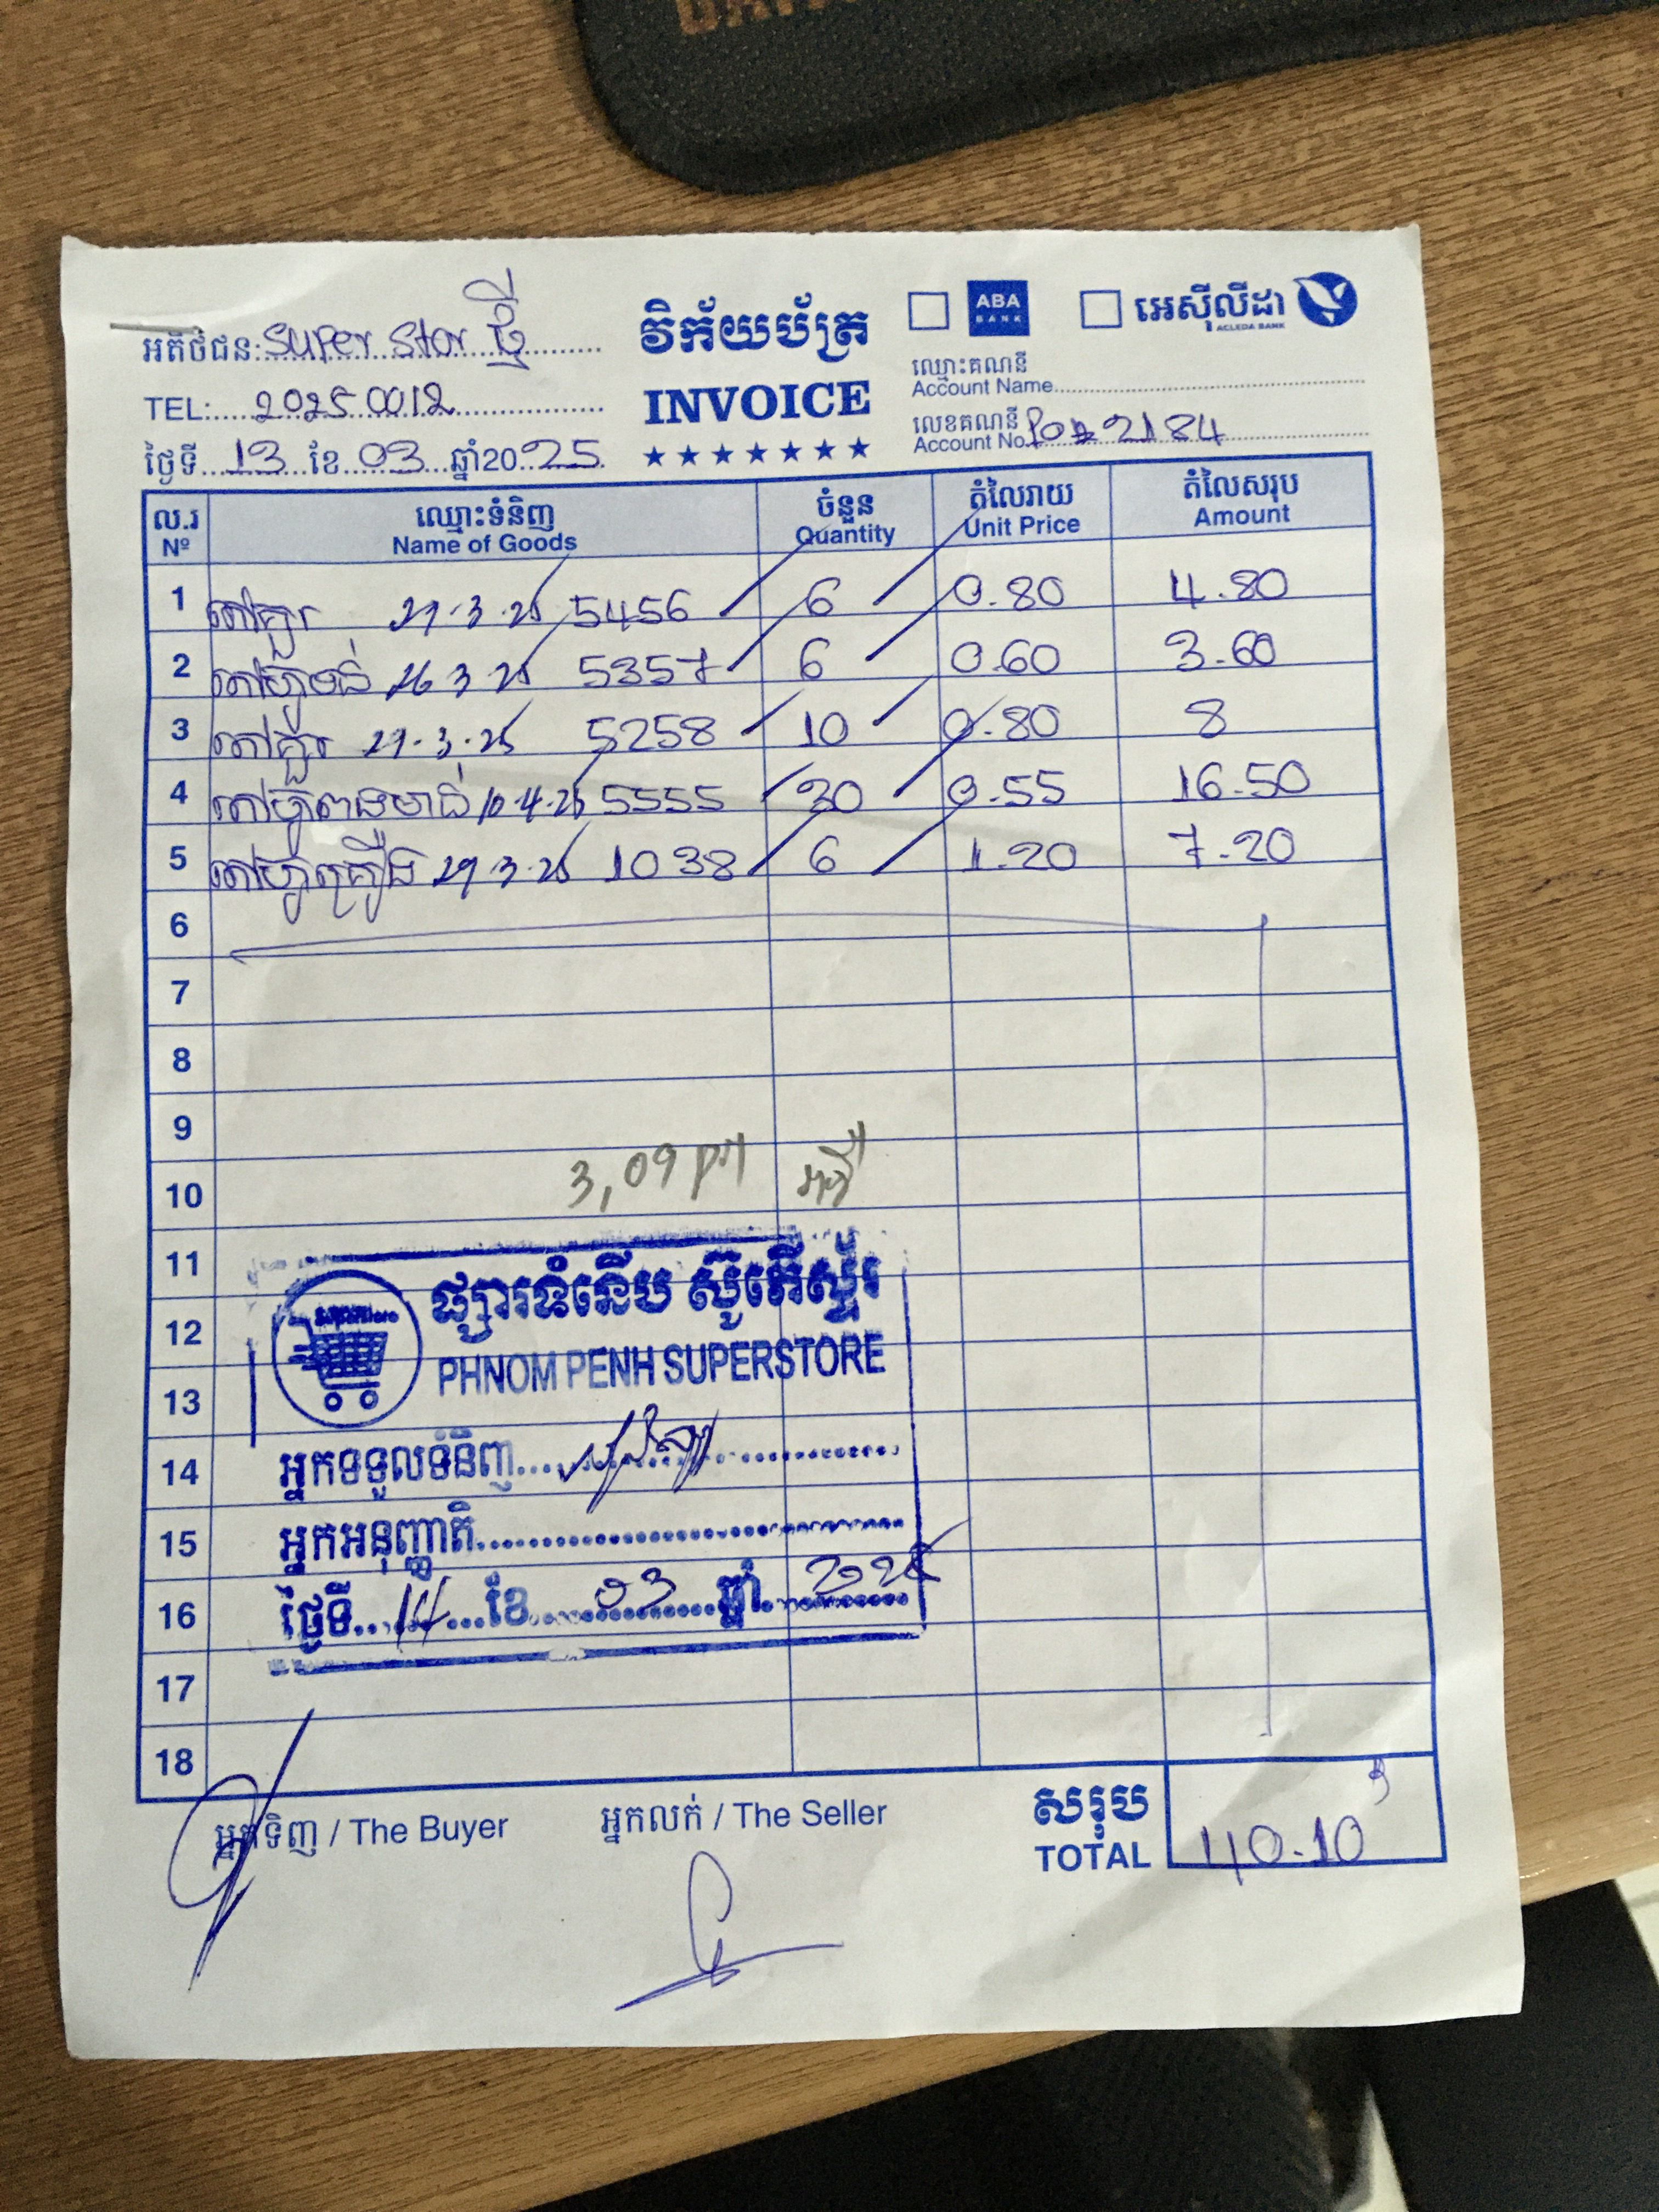 អតិថិជន: super stor ថ្មី
TEL: 2025 0012
ថ្ងៃទី 13 ខែ 03 ឆ្នាំ20 25
វិក័យប័ត្រ
INVOICE
ABA BANK
អេស៊ីលីដា
ACLEDA BANK
ឈ្មោះគណនី
Account Name
លេខគណនី
Account No. 2184
ល.រ ឈ្មោះទំនិញ ចំនួន តំលៃរាយ តំលៃសរុប
Nº Name of Goods Quantity Unit Price Amount
1 តៅគួរ 5456 6 0.80 4.80
2 5357 6 0.60 3.60
3 តៅគួរ 5258 10 0.80 8
4 10.4.25 5555 30 0.55 16.50
5 1038 6 1.20 7.20
6
7
8
9
10 3,09 pm
11
12
13
14
15
16
17
18
ផ្សារទំនើប ស៊ូភើស្ទ័រ
PHNOM PENH SUPERSTORE
អ្នកទទួលទំនិញ
អ្នកអនុញ្ញាតិ
ថ្ងៃទី 14 ខែ 03 ឆ្នាំ 2025
អ្នកទិញ / The Buyer
អ្នកលក់ / The Seller
សរុប
TOTAL 40.10